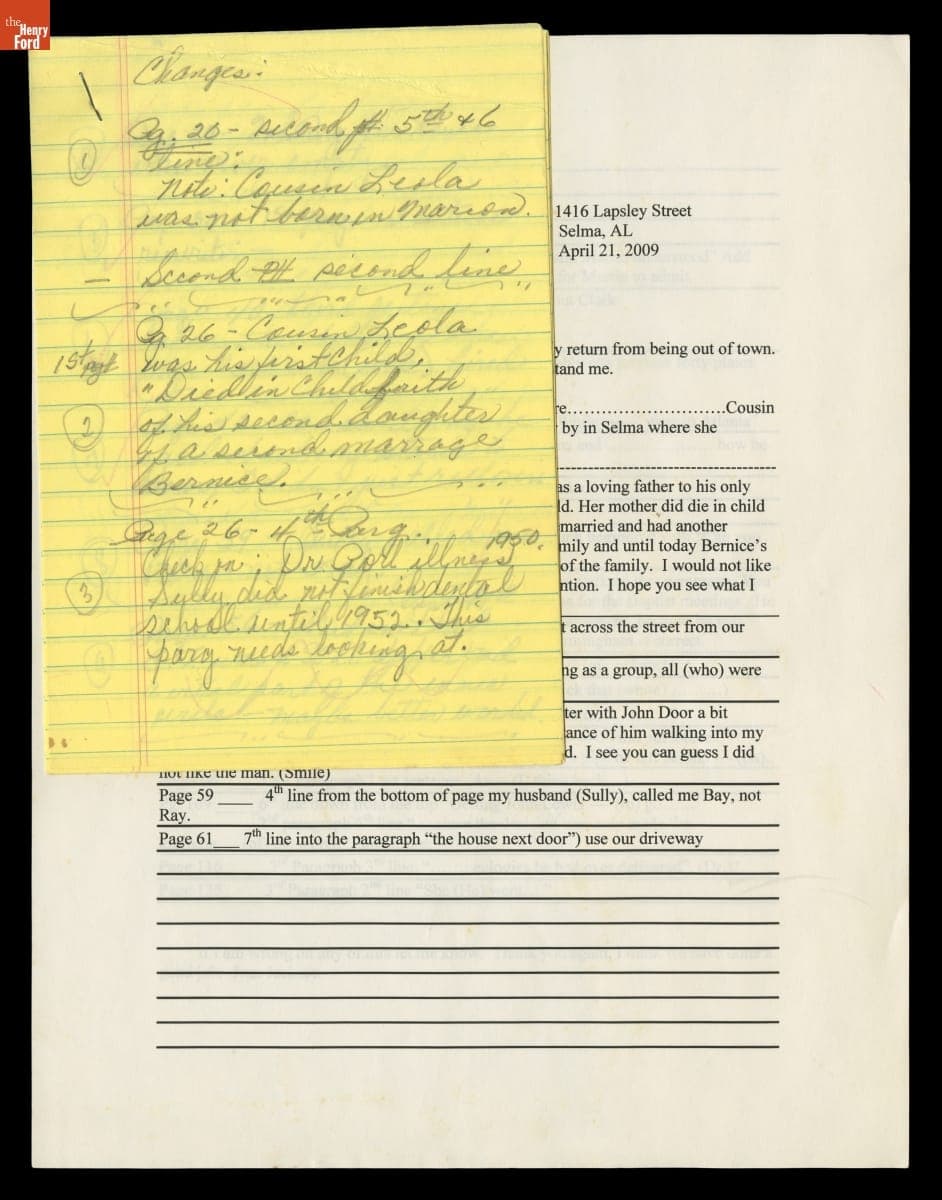 the
Henry
Ford
Changes:
① Pg. 26 - second 5th & 6
line:
Note: Cousin Leola
was not born in Marion.
- Second second line
Pg 26 - Cousin Leola
1st was his first child.
"Died in Child
② of his second daughter
of a second marrage
Bernice.
Page 26 - 4th Parg.
1950.
Check on: Dr illness
③ Sully did not finish dental
school until 1952. This
parg needs looking at.
1416 Lapsley Street
Selma, AL
April 21, 2009
y return from being out of town.
tand me.
re............................Cousin
by in Selma where she
as a loving father to his only
ld. Her mother did die in child
married and had another
mily and until today Bernice's
of the family. I would not like
ntion. I hope you see what I
t across the street from our
ng as a group, all (who) were
ter with John Door a bit
ance of him walking into my
d. I see you can guess I did
not like the man. (Smile)
Page 59 ____ 4th line from the bottom of page my husband (Sully), called me Bay, not
Ray.
Page 61___ 7th line into the paragraph “the house next door”) use our driveway